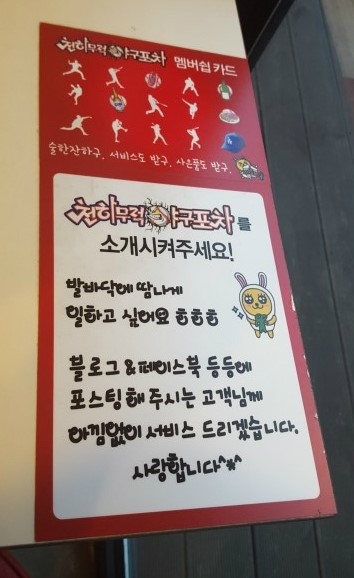 천하무적 야구포차 멤버쉽 카드
술한잔하구, 서비스도 받구, 사은품도 받구,
천하무적 야구포차를
소개시켜주세요!
발바닥에 땀나게
일하고 싶어요 ㅎㅎㅎ
블로그&페이스북 등등에
포스팅해 주시는 고객님께
아낌없이 서비스 드리겠습니다.
사랑합니다^*^